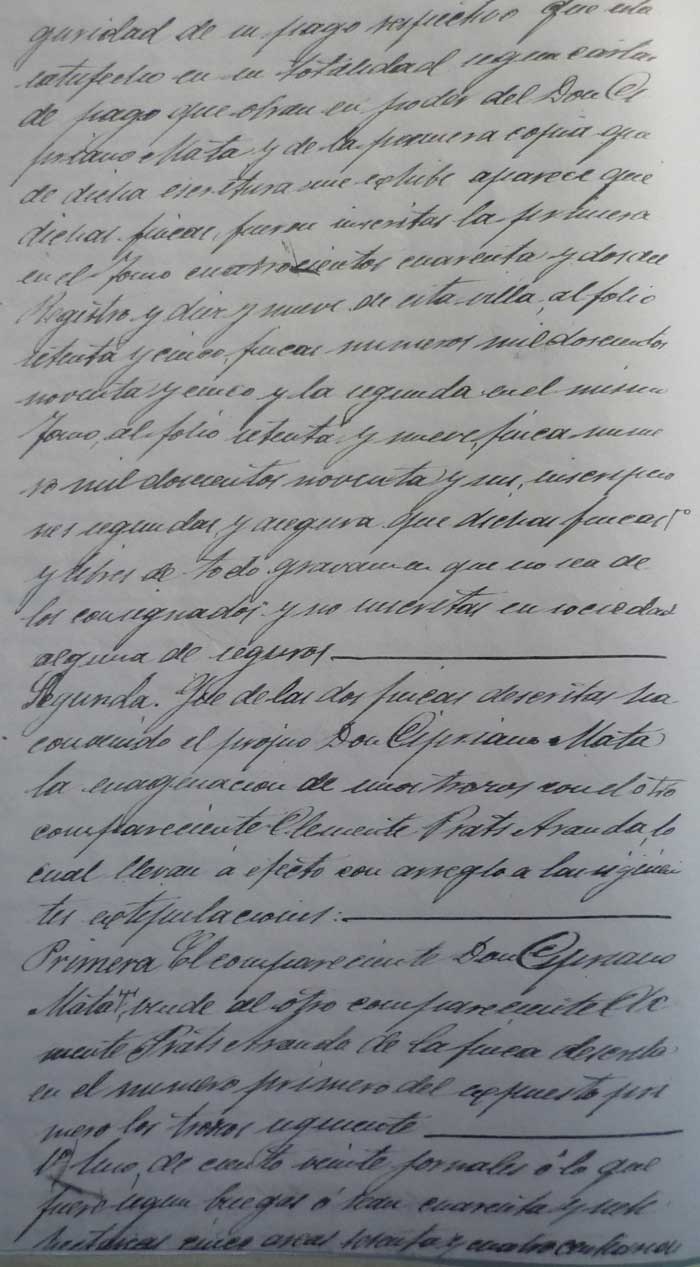 guridad de su pago respectivo que está
satisfecho en su totalidad segun cartas
de pago que obran en poder del Don Ci
priano Mata y de la primera copia que
de dicha escritura me exhibe aparece que
dichas fincas, fueron inscritas la primera
en el Tomo cuatrocientos cuarenta y dos del
Registro y diez y nueve de esta villa, al folio
setenta y cinco, fincas numeros mil doscientos
noventa y cinco y la segunda en el mismo
Tomo, al folio setenta y nueve, finca nume
ro mil doscientos noventa y seis, inscripcio
nes segundas, y asegura que dichas fincas
y libres de todo gravamen que no sea de
los consignados y no inscritas en sociedad
alguna de seguros
Segunda. Que de las dos fincas descritas ha
convenido el propio Don Cipriano Mata
la enagenacion de unos trozos con el otro
compareciente Clemente Prats Aranda, lo
cual llevan á efecto con arreglo a las siguien
tes estipulaciones:
Primera El compareciente Don Cipriano
Mata, vende al otro compareciente Cle
mente Prats Aranda de la finca descrita
en el numero primero del expuesto pri
mero los trozos siguiente
1º Uno, de ciento veinte jornales ó lo que
fuere segun buegas ó sean cuarenta y seis
hectáreas cinco areas setenta y cuatro centiareas